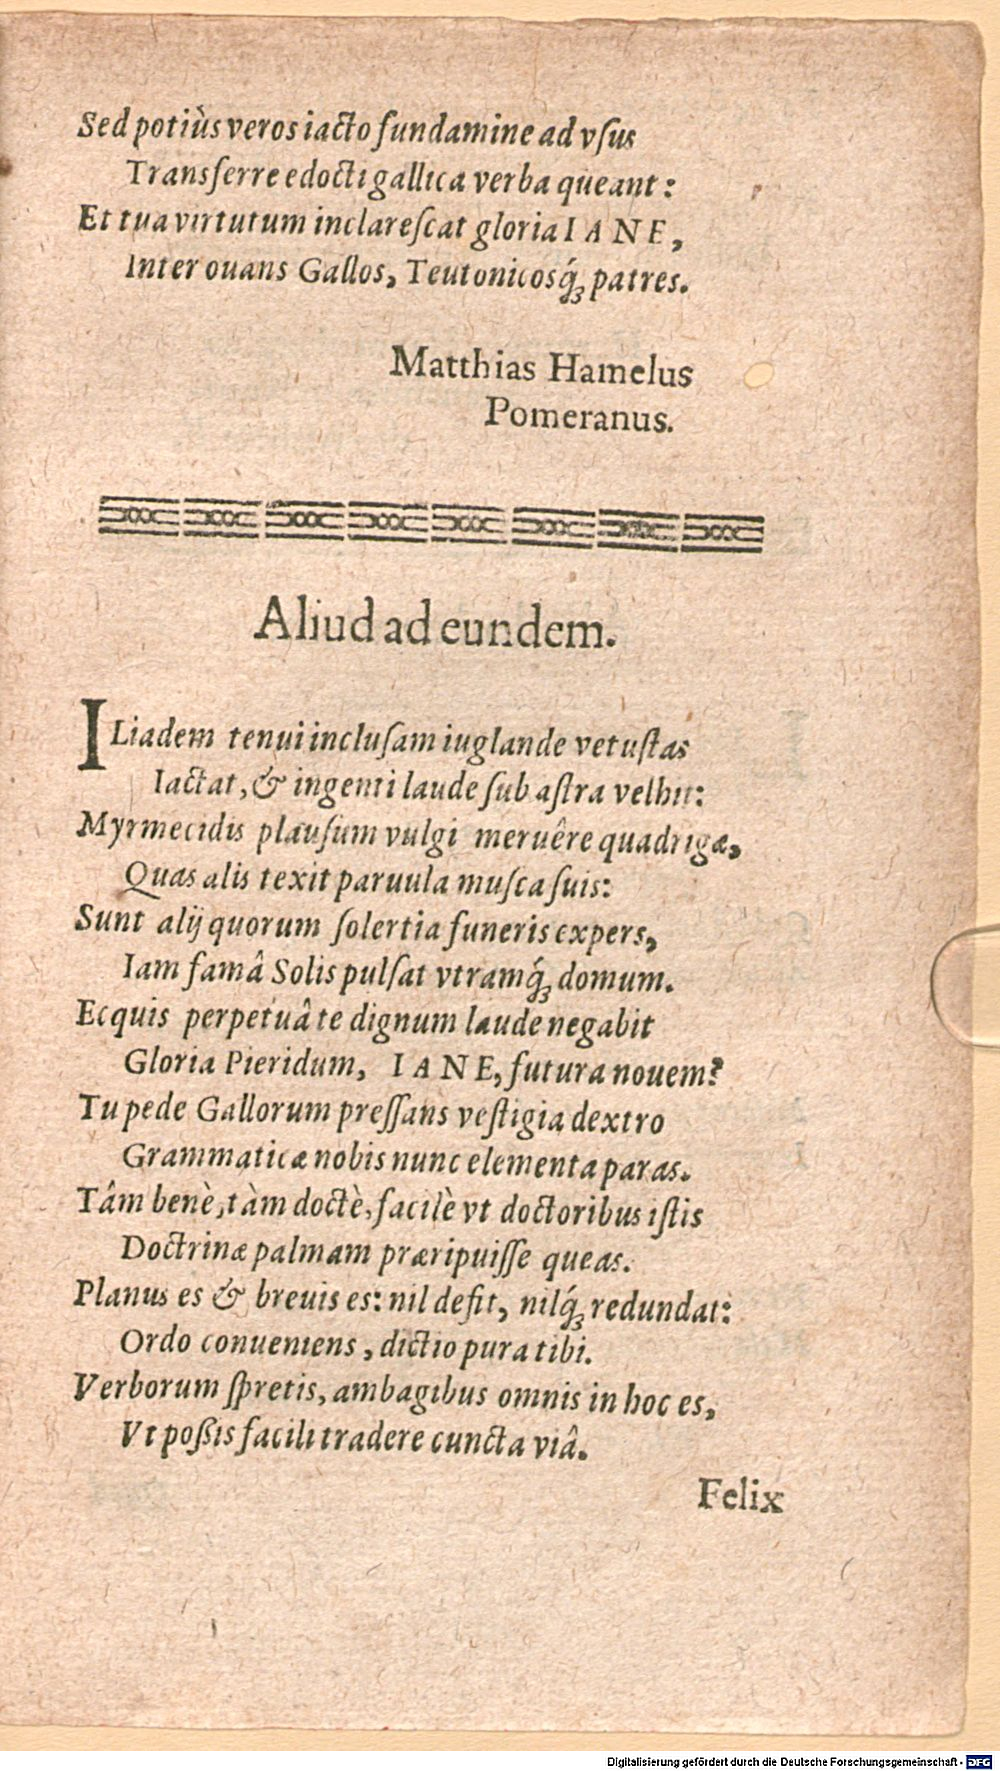 Sed potiùs veros iacto fundamine ad vſus
Transferre edocti gallica verba queant:
Et tua virtutum inclareſcat gloria IANE,
Inter ouans Gallos, Teutonicosq́ꝫ patres.
Matthias Hamelus
Pomeranus.
Aliud ad eundem.
ILiadem tenui incluſam iuglande vetuſtas
Iactat, & ingenti laude ſub aſtra velhit:
Myrmecidis plauſum vulgi meruêre quadrigæ,
Quas alis texit paruula muſca ſuis:
Sunt alij quorum ſolertia funeris expers,
Iam famâ Solis pulſat vtramq́ꝫ domum.
Ecquis perpetuâ te dignum laude negabit
Gloria Pieridum, IANE, futura nouem?
Tu pede Gallorum preſſans veſtigia dextro
Grammaticæ nobis nunc elementa paras.
Tâm benè, tàm doctè, facilè vt doctoribus iſtis
Doctrinæ palmam præripuiſſe queas.
Planus es & breuis es: nil deſit, nilq́ꝫ redundat:
Ordo conueniens, dictio pura tibi.
Verborum ſpretis, ambagibus omnis in hoc es,
Vt poßis facili tradere cuncta viâ.
Felix
Digitalisierung gefördert durch die Deutsche Forschungsgemeinschaft - DFG